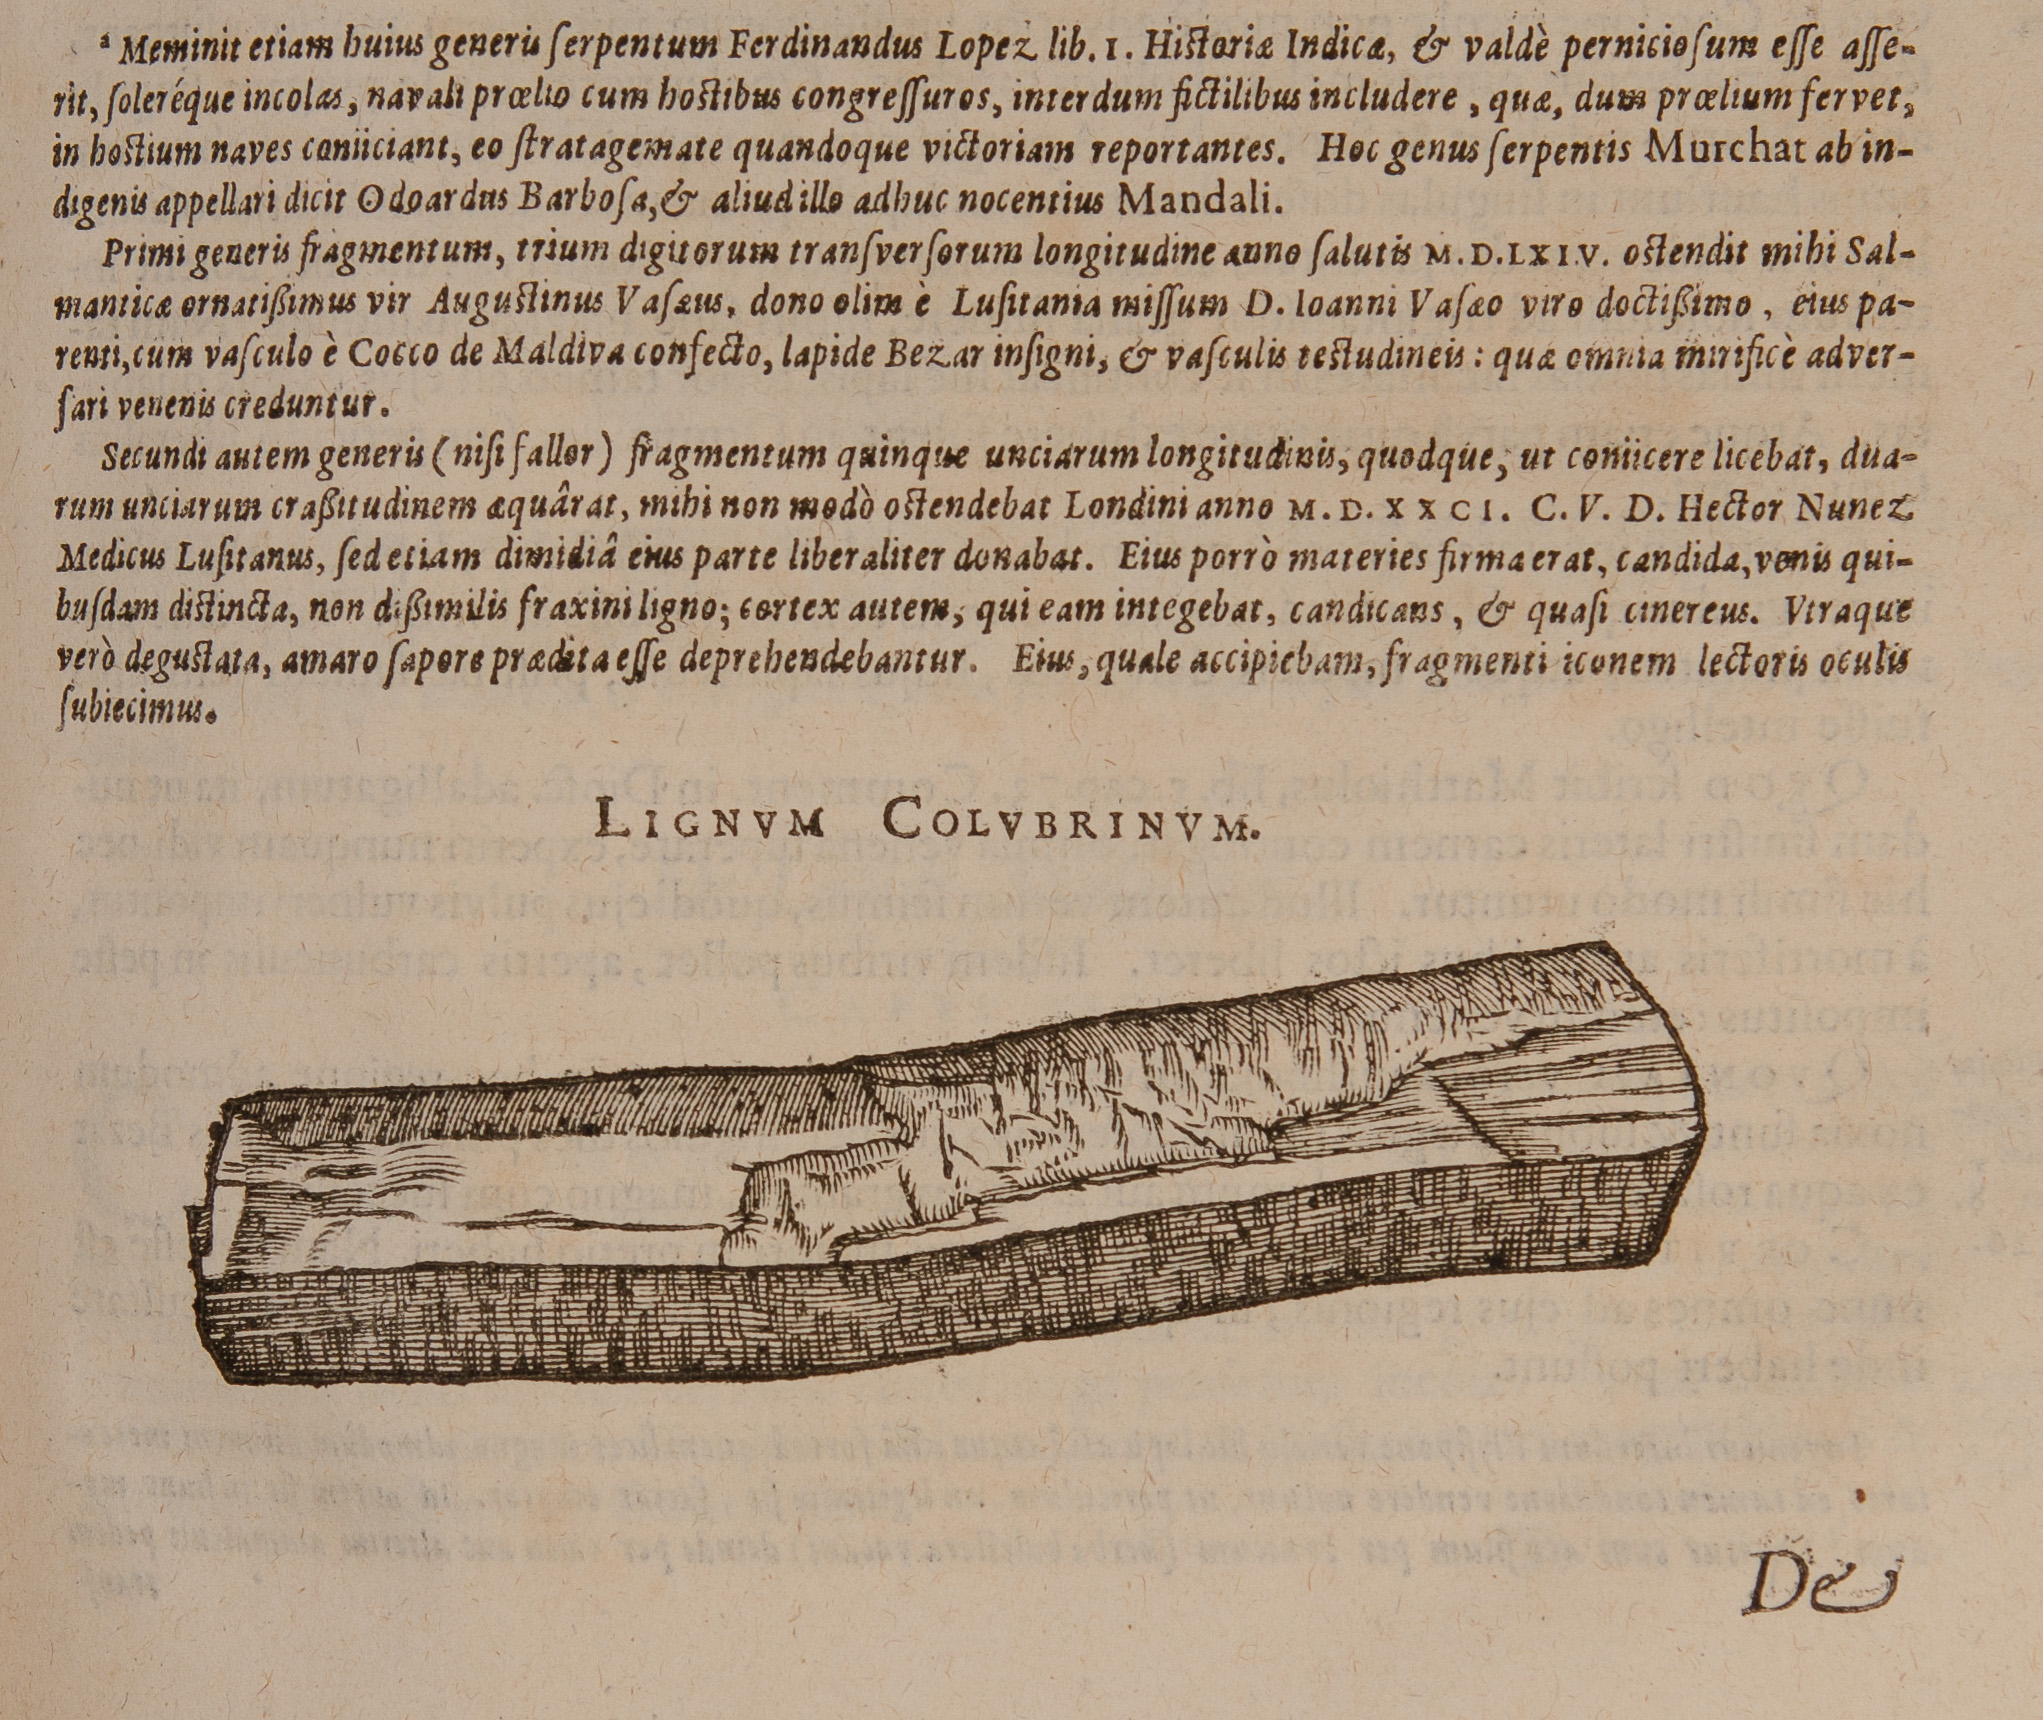 ᵃ Meminit etiam huius generis ſerpentum Ferdinandus Lopez lib. 1. Hiſtoriæ Indicæ, & valdè pernicioſum eſſe aſſe-
rit, ſoleréque incolas, navali prœlio cum hoſtibus congreſſuros, interdum fictilibus includere, quæ, dum prœlium fervet,
in hoſtium naves coniiciant, eo ſtratagemate quandoque victoriam reportantes. Hoc genus ſerpentis Murchat ab in-
digenis appellari dicit Odoardus Barboſa, & aliud illo adhuc nocentius Mandali.
Primi generis fragmentum, trium digitorum tranſverſorum longitudine anno ſalutis M.D.LXIV. oſtendit mihi Sal-
manticæ ornatißimus vir Auguſtinus Vaſæus, dono olim è Luſitania miſſum D. Ioanni Vaſæo viro doctißimo, eius pa-
renti, cum vaſculo è Cocco de Maldiva confecto, lapide Bezar inſigni, & vaſculis teſtudineis: quæ omnia mirificè adver-
ſari venenis creduntur.
Secundi autem generis (niſi fallor) fragmentum quinque unciarum longitudinis, quodque, ut coniicere licebat, dua-
rum unciarum craßitudinem æquârat, mihi non modò oſtendebat Londini anno M.D.XXCI. C.V.D. Hector Nunez
Medicus Luſitanus, ſed etiam dimidiâ eius parte liberaliter donabat. Eius porrò materies firma erat, candida, venis qui-
buſdam diſtincta, non dißimilis fraxini ligno; cortex autem, qui eam integebat, candicans, & quaſi cinereus. Vtraque
verò deguſtata, amaro ſapore prædita eſſe deprehendebantur. Eius, quale accipiebam, fragmenti iconem lectoris oculis
ſubiecimus.
LIGNVM COLVBRINVM.
De